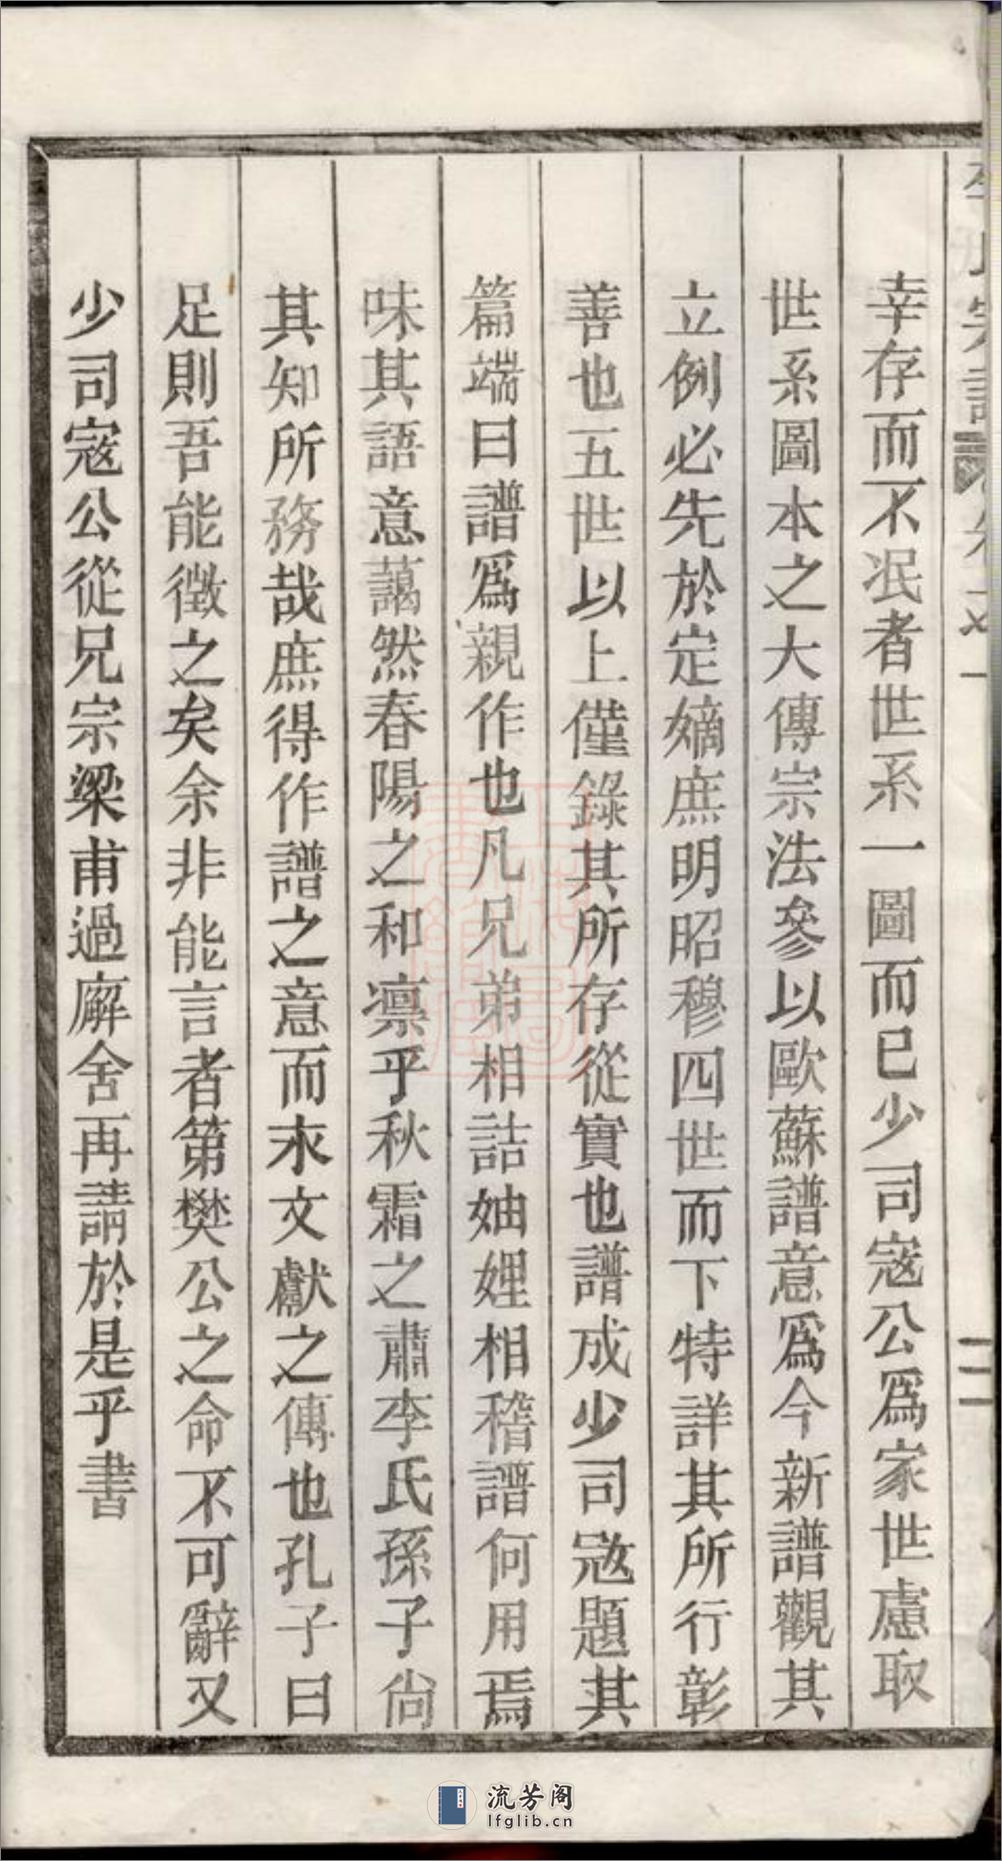 幸存而不泯者世系一圖而已少司寇公爲家世慮取
世系圖本之大傳宗法參以歐蘇譜意爲今新譜觀其
立例必先於定嫡庶明昭穆四世而下特詳其所行彰
善也五世以上僅錄其所存從實也譜成少司寇題其
篇端曰譜爲親作也凡兄弟相詰妯娌相稽譜何用焉
味其語意藹然春陽之和凛乎秋霜之肅李氏孫子尙
其知所務哉庶得作譜之意而末文獻之傳也孔子曰
足則吾能徵之矣余非能言者第樊公之命不可辭又
少司寇公從兄宗梁甫過廨舍再請於是乎書
流芳阁
lfglib.cn